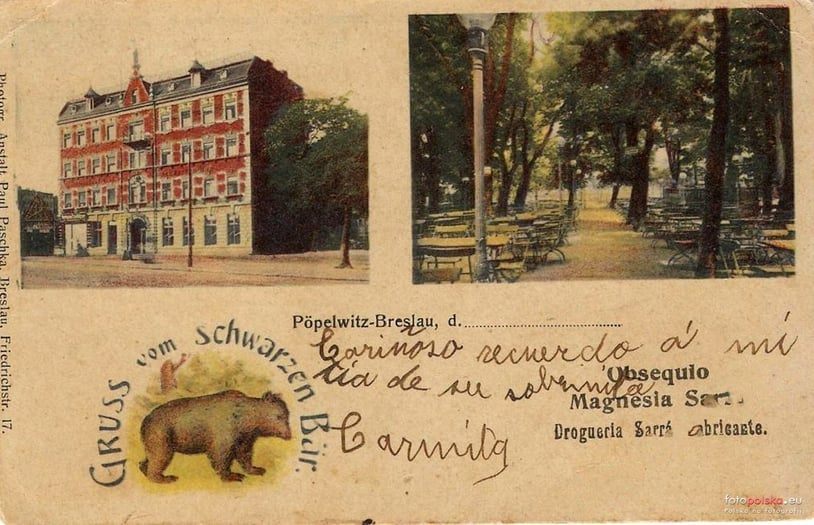 Photogr. Anstalt Paul Paschka, Breslau, Friedrichstr. 17.
Pöpelwitz-Breslau, d.
Gruss vom Schwarzen Bär.
Cariñoso recuerdo á mi
tia de su sobrinita
Carmita
Obsequio
Magnesia Sarrá.
Drogueria Sarrá Fabricante.
fotopolska.eu
Polska na fotografii